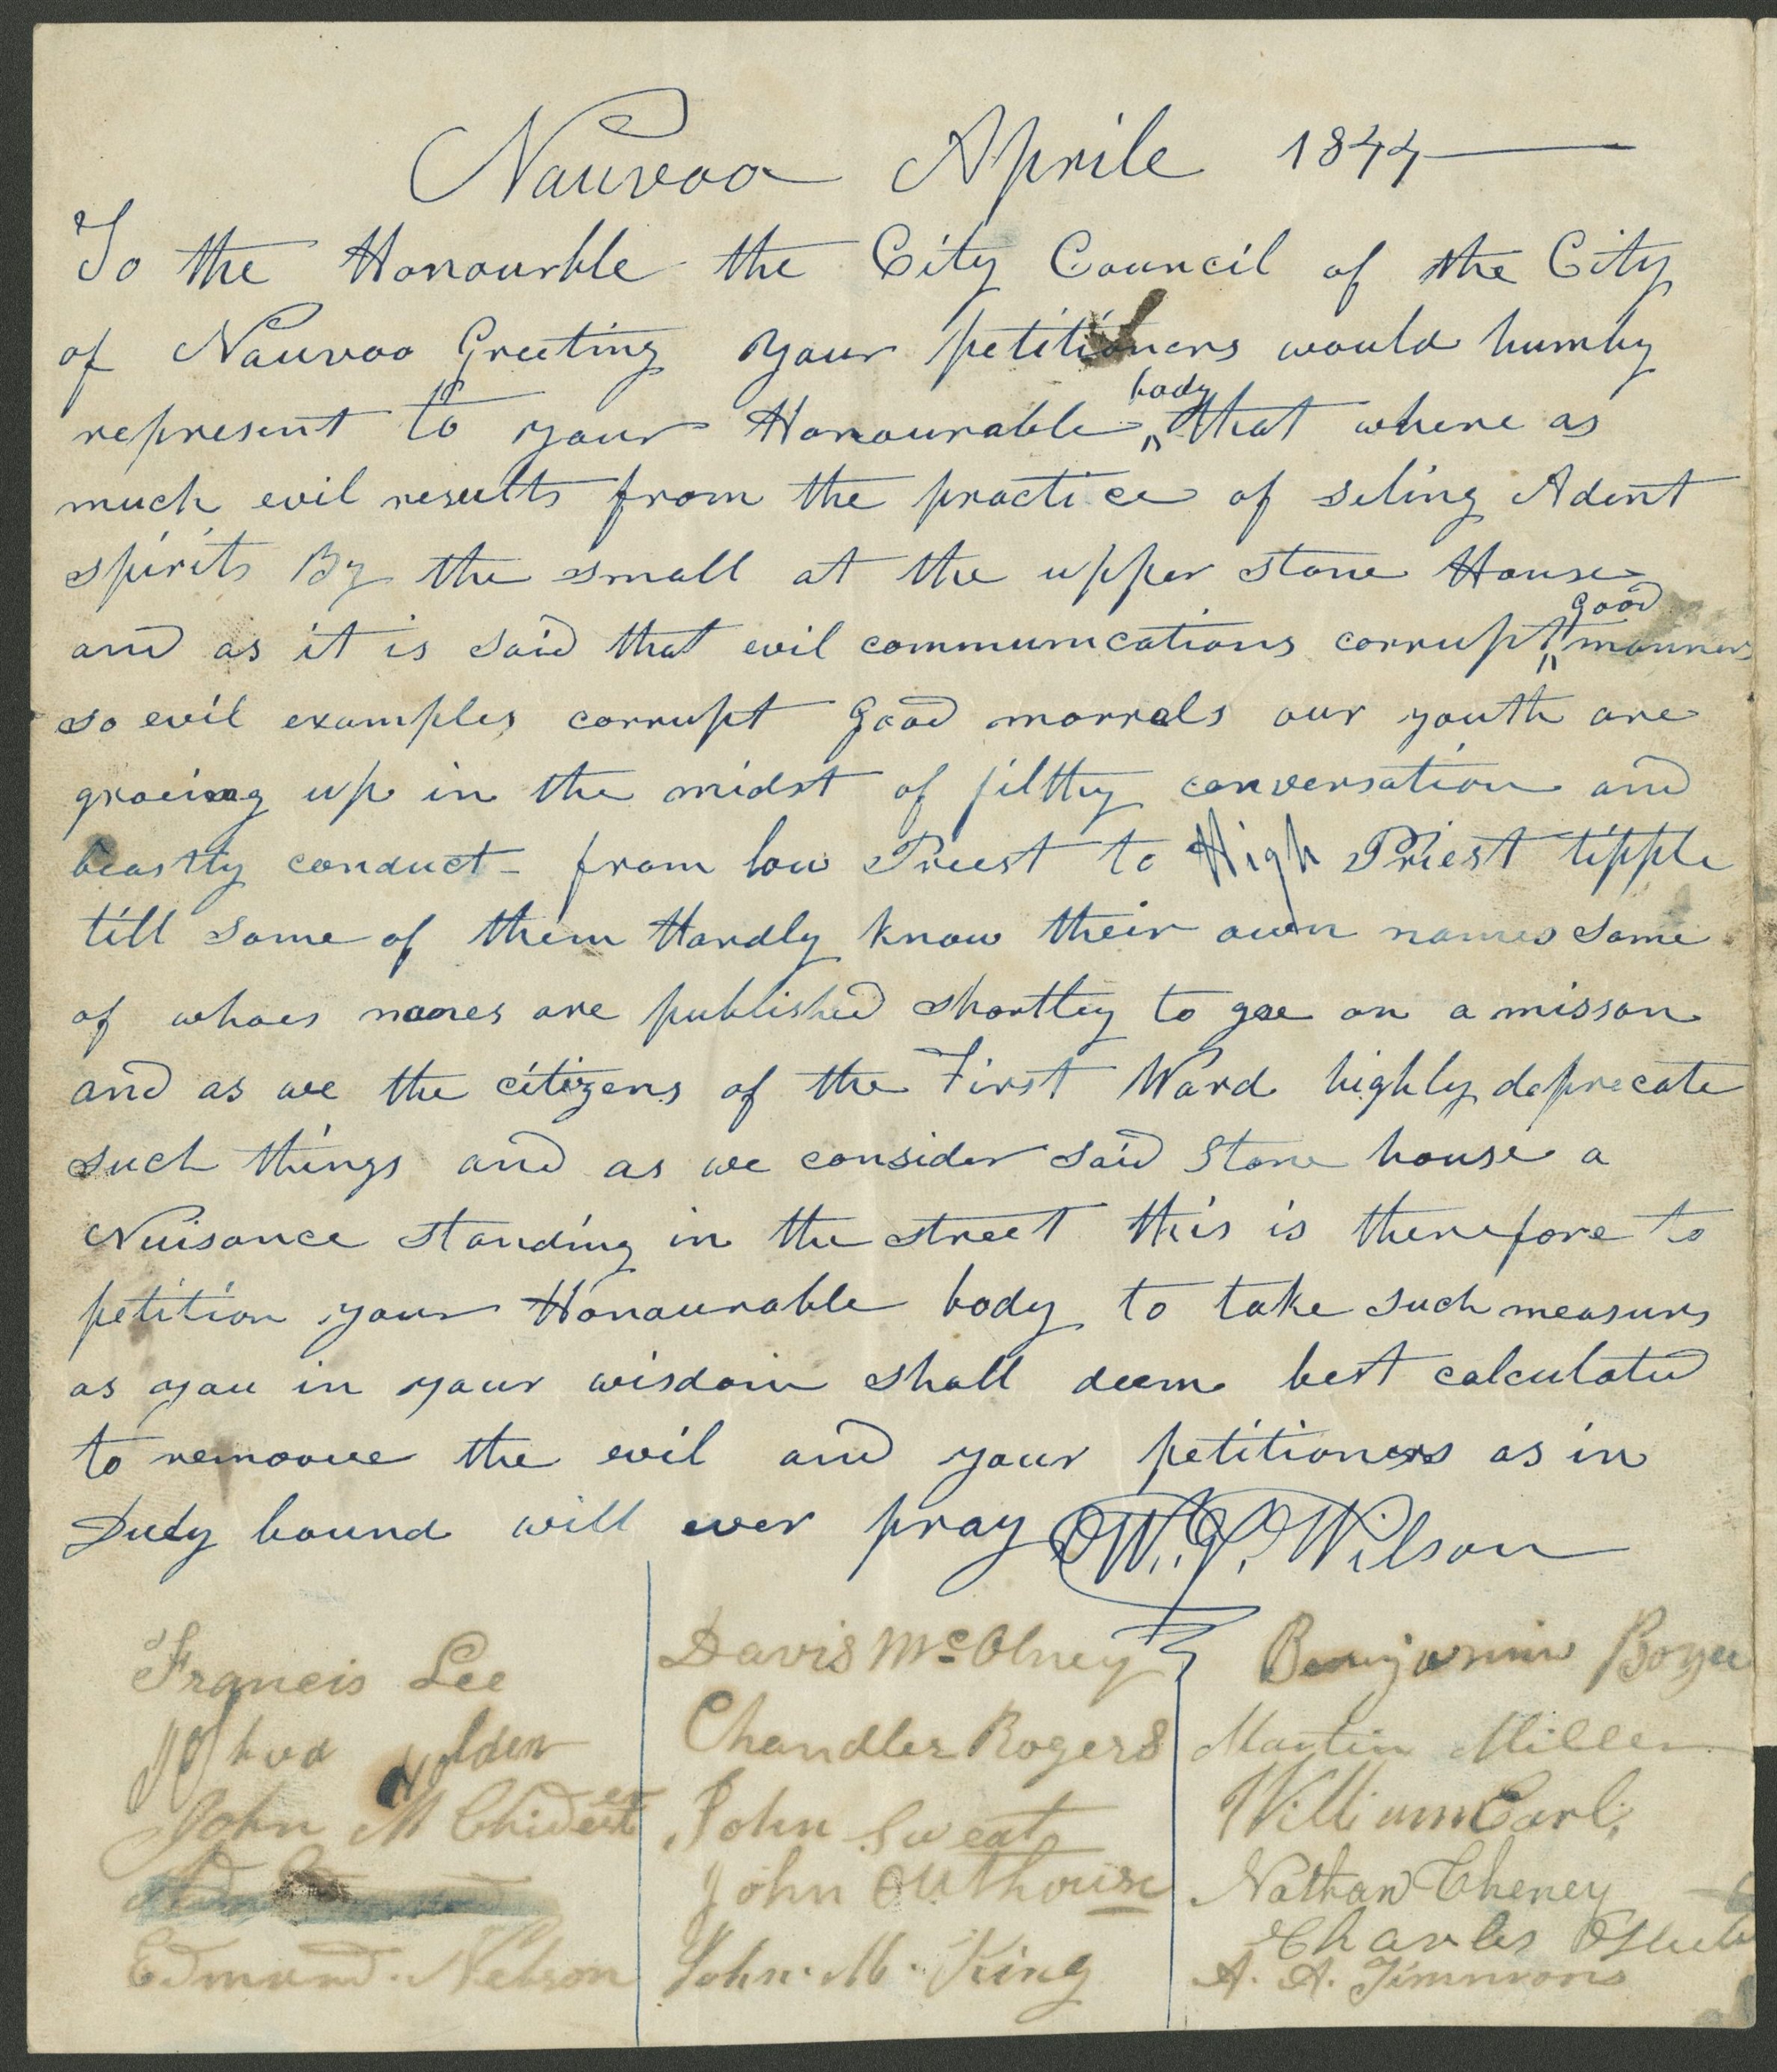 Nauvoo Aprile 1844
To the Honourble the City Council of the City
of Nauvoo Greeting your petitioners would humby
represent to your Honourable body that where as
much evil results from the practice of seling Adent
spirits By the small at the upper stone House
and as it is said that evil communications corrupt good manners
so evil examples corrupt good morrals our youth are
groeing up in the midst of filthy conversation and
beastly conduct - from low Priest to High Priest tipple
till some of them Hardly know their own names some
of whoes names are published shortley to goe on a misson
and as we the citizens of the First Ward highly deprecate
such things and as we consider said Stone house a
Nuisance standing in the street this is therefore to
petition your Honourable body to take such measurs
as you in your wisdom shall deem best calculated
to remoove the evil and your petitioners as in
Duty bound will ever pray W. P. Wilson
Francis Lee
John M Chidester
Edmund. Nelson
Davis McOlney
Chandler Rogers
John Sweat
John Outhouse
John. M. King
Benjamin Boyce
Martin Miller
William Earl.
Nathan Cheney
Charles
A. A. Timmons